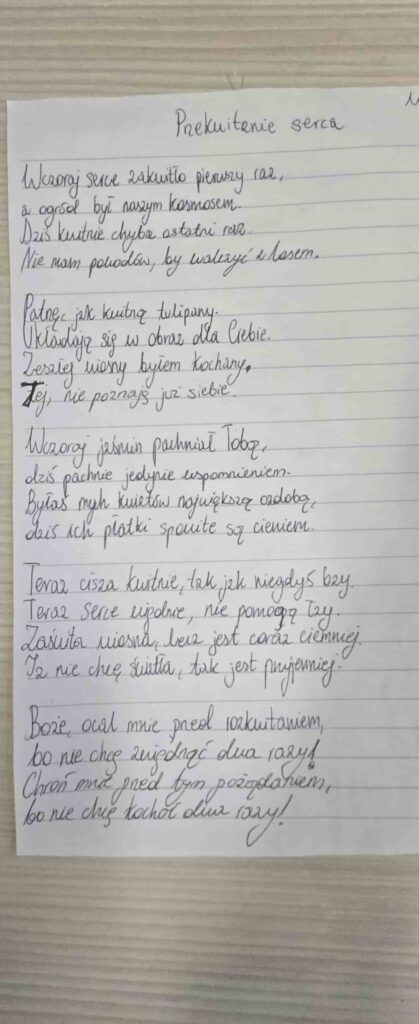 Przekwitanie serca
Wczoraj serce zakwitło pierwszy raz,
a ogród był naszym kosmosem.
Dziś kwitnie chyba ostatni raz.
Nie mam powodów, by walczyć z losem.
Patrzę, jak kwitną tulipany.
Układają się w obraz dla Ciebie.
Zeszłej wiosny byłem kochany.
Tej, nie poznaję już siebie.
Wczoraj jaśmin pachniał Tobą,
dziś pachnie jedynie wspomnieniem.
Byłaś mych kwiatów największą ozdobą,
dziś ich płatki spowite są cieniem.
Teraz cisza kwitnie, tak jak niegdyś bzy.
Teraz serce więdnie, nie pomogą łzy.
Zaświta wiosna, lecz jest coraz ciemniej.
Ja nie chcę światła, tak jest przyjemniej.
Boże, ocal mnie przed rozkwitaniem,
bo nie chcę zwiędnąć dwa razy!
Chroń mnie przed tym pożądaniem,
bo nie chcę kochać dwa razy!